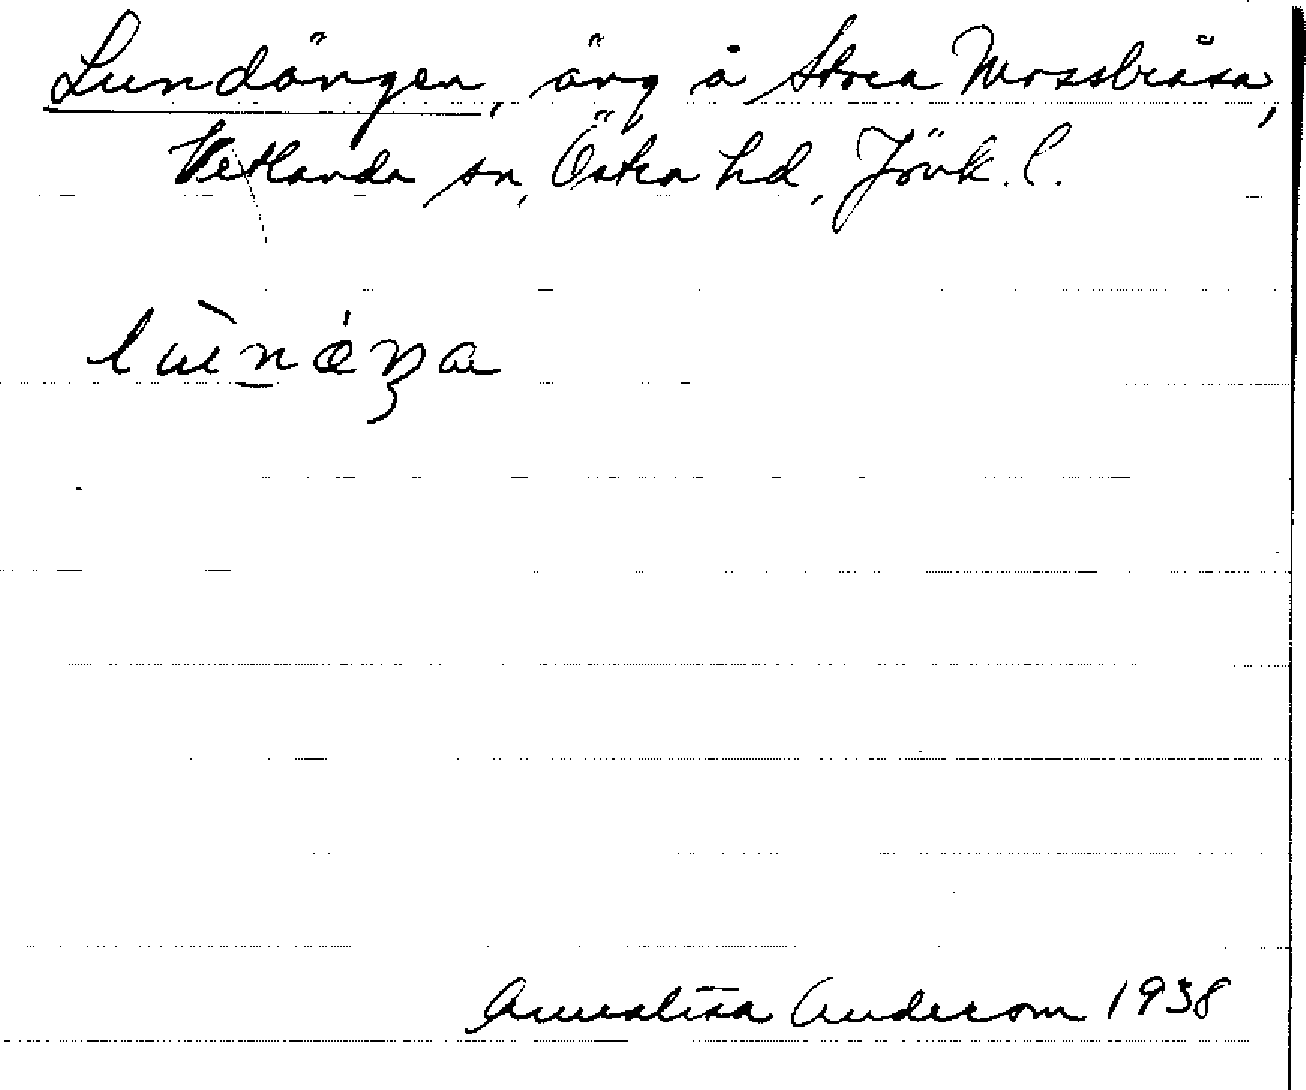 Lundängen, äng å Stora Mossbråsa,
Vetlanda sn, Östra hd, Jönk. l.
Annalisa Anderson 1938